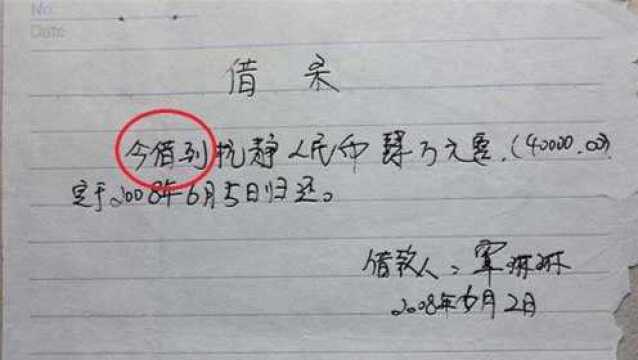 No.
Date
借条
今借到抗静人民币肆万元整.(40000.00)
定于2008年6月5日归还。
借款人:军琳琳
2008年6月2日